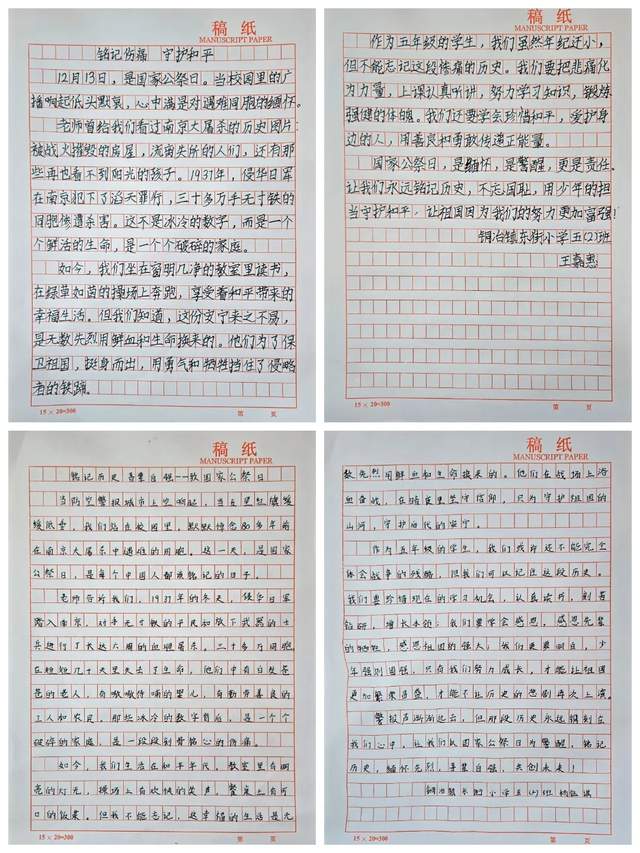 稿 纸
MANUSCRIPT PAPER
铭记伤痛 守护和平
12月13日，是国家公祭日。当校园里的广
播响起低头默哀，心中满是对遇难同胞的缅怀。
老师曾给我们看过南京大屠杀的历史图片：
被战火摧毁的房屋，流离失所的人们，还有那
些再也看不到阳光的孩子。1937年，侵华日军
在南京犯下了滔天罪行，三十多万手无寸铁的
同胞惨遭杀害。这不是冰冷的数字，而是一个
个鲜活的生命，是一个个破碎的家庭。
如今，我们坐在窗明几净的教室里读书，
在绿草如茵的操场上奔跑，享受着和平带来的
幸福生活。但我们知道，这份安宁来之不易，
是无数先烈用鲜血和生命换来的。他们为了保
卫祖国，挺身而出，用勇气和牺牲挡住了侵略
者的铁蹄。
15 × 20=300 第 页
稿 纸
MANUSCRIPT PAPER
作为五年级的学生，我们虽然年纪还小，
但不能忘记这段惨痛的历史。我们要把悲痛化
为力量，上课认真听讲，努力学习知识，锻炼
强健的体魄。我们还要学会珍惜和平，爱护身
边的人，用善良和勇敢传递正能量。
国家公祭日，是缅怀，是警醒，更是责任。
让我们永远铭记历史，不忘国耻，用少年的担
当守护和平，让祖国因为我们的努力更加富强！
铜冶镇东街小学五(2)班
王嘉惠
15 × 20=300 第 页
稿 纸
MANUSCRIPT PAPER
铭记历史 吾辈自强--致国家公祭日
当防空警报城市上空响起，当五星红旗缓
缓低垂，我们站在校园里，默默悼念80多年前
在南京大屠杀中遇难的同胞。这一天，是国家
公祭日，是每个中国人都该铭记的日子。
老师告诉我们，1937年的冬天，侵华日军
踏入南京，对手无寸铁的平民和放下武器的士
兵进行了长达六周的血腥屠杀。三十多万同胞
在短短几十天里失去了生命，他们中有白发苍
苍的老人，有嗷嗷待哺的婴儿，有勤劳善良的
工人和农民，那些冰冷的数字背后，是一个个
破碎的家庭，是一段段刻骨铭心的伤痛。
如今，我们生活在和平年代。教室里有明
亮的灯光，操场上有欢快的笑声，餐桌上有可
口的饭菜。但我不能忘记，这幸福的生活是无
15 × 20=300 第 页
稿 纸
MANUSCRIPT PAPER
数先烈用鲜血和生命换来的。他们在战场上浴
血奋战，在暗夜里坚守信仰，只为守护祖国的
山河，守护后代的安宁。
作为五年级的学生，我们或许还不能完全
体会战争的残酷，但我们可以记住这段历史。
我们要珍惜现在的学习机会，认真读书，刻苦
钻研，增长本领；我们要学会感恩，感恩先辈
的牺牲，感恩祖国的强大；我们更要明白，少
年强则国强，只有我们努力成长，才能让祖国
更加繁荣昌盛，才能不让历史的悲剧再次上演。
警报声渐渐远去，但那段历史永远镌刻在
我们心中。让我们以国家公祭日为警醒，铭记
历史，缅怀先烈，吾辈自强，共创未来！
铜冶镇东街小学五(2)班
15 × 20=300 第 页